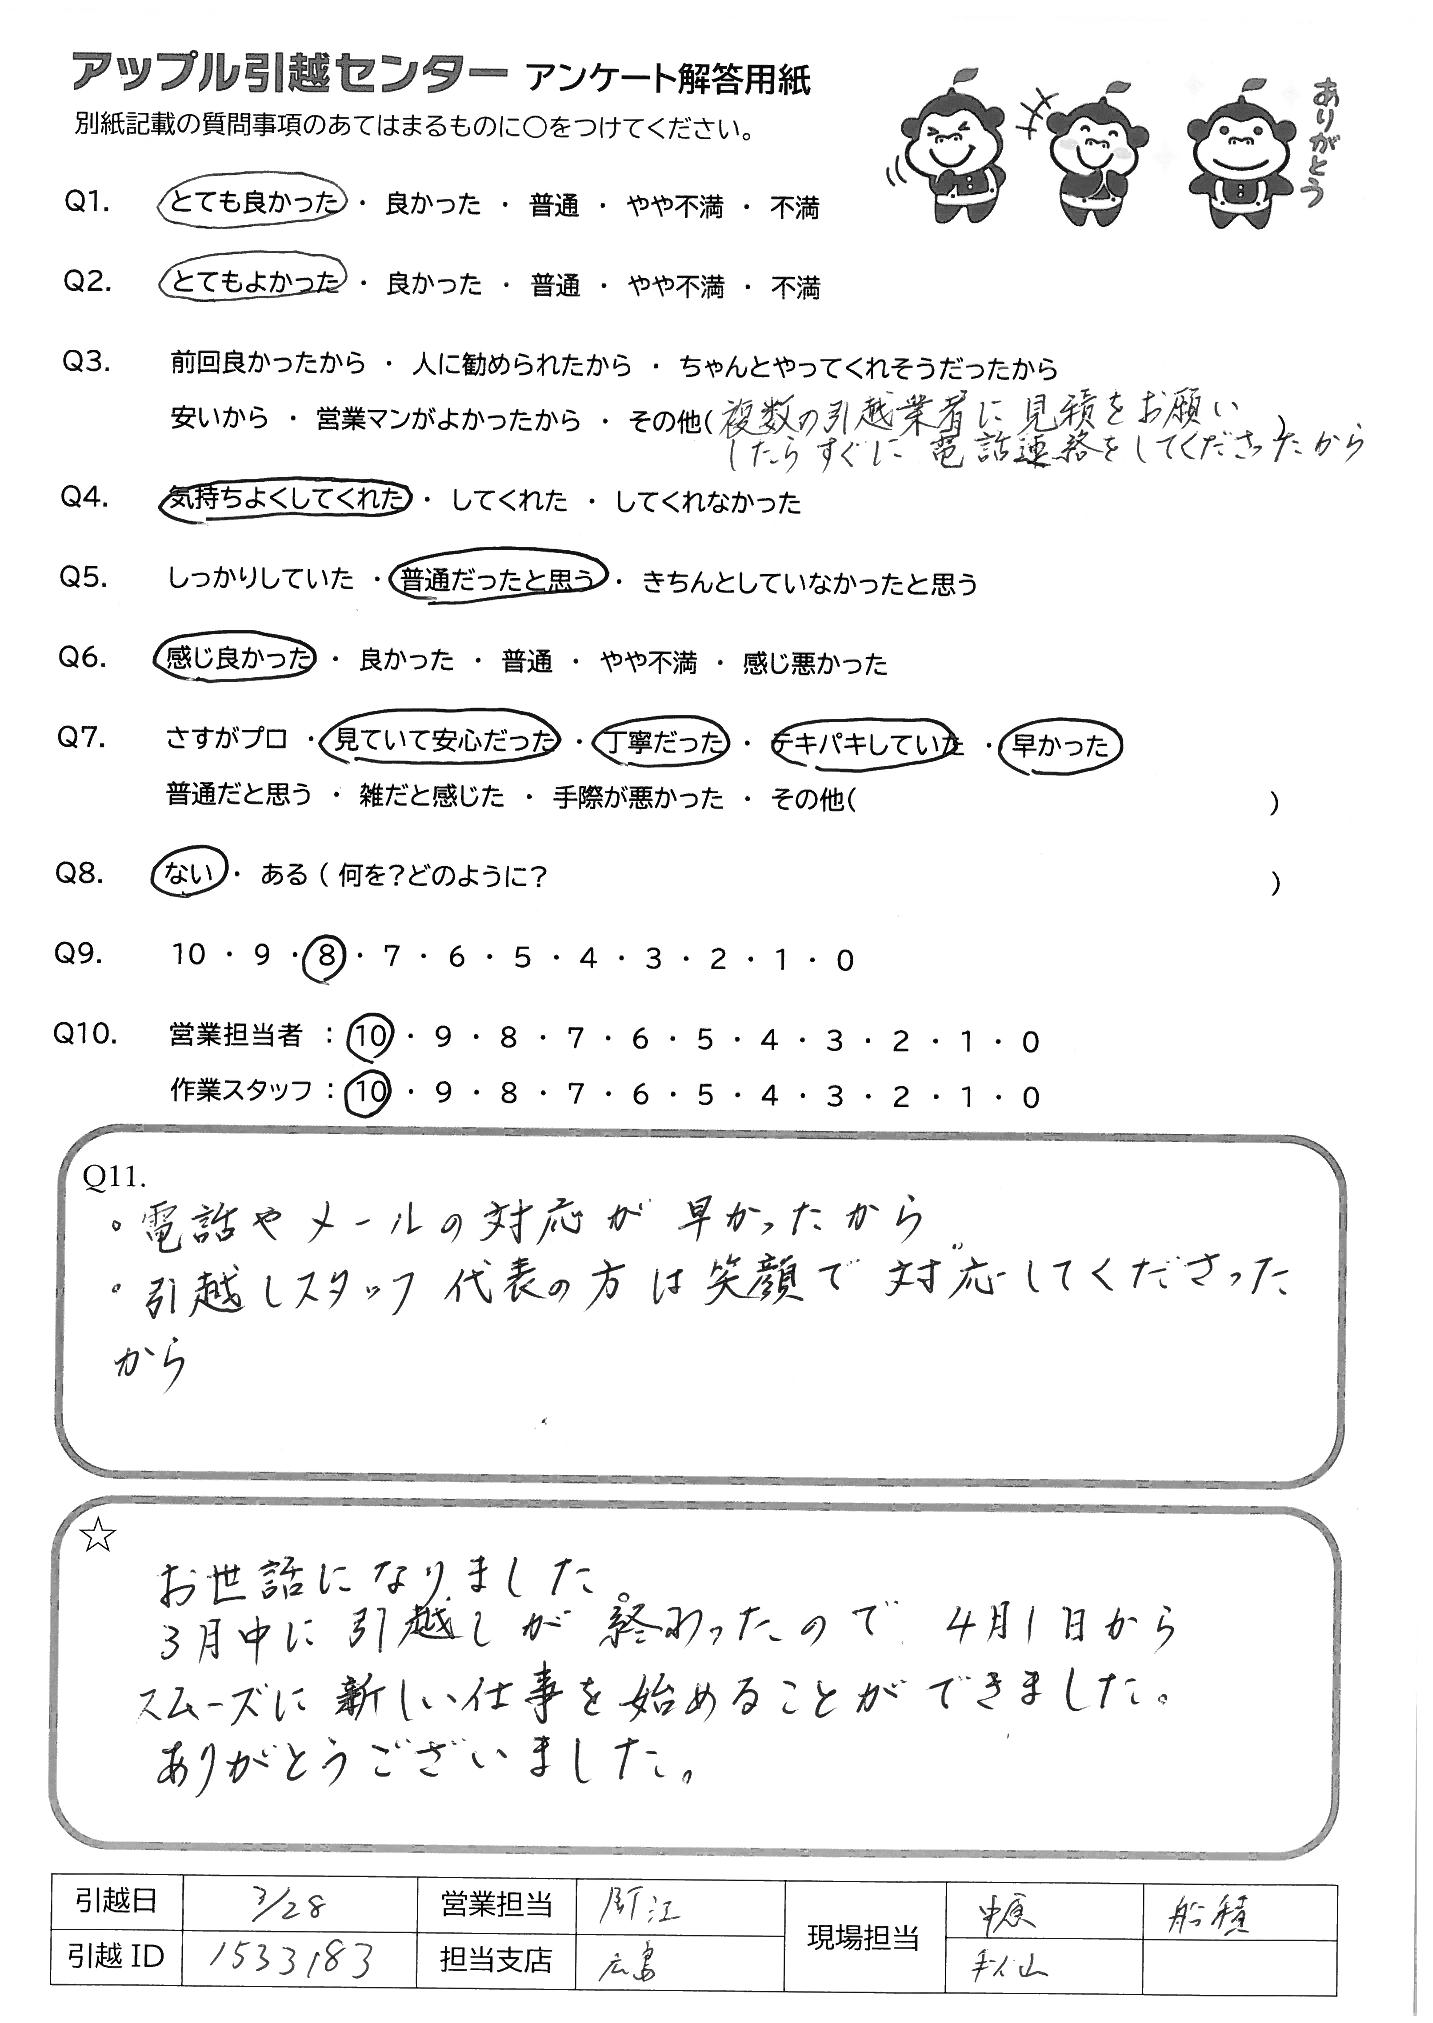 アップル引越センター アンケート解答用紙
別紙記載の質問事項のあてはまるものに○をつけてください。
ありがとう
Q1. とても良かった ・ 良かった ・ 普通 ・ やや不満 ・ 不満
Q2. とてもよかった ・ 良かった ・ 普通 ・ やや不満 ・ 不満
Q3. 前回良かったから ・ 人に勧められたから ・ ちゃんとやってくれそうだったから
安いから ・ 営業マンがよかったから ・ その他( 複数の引越業者に見積をお願い
したらすぐに電話連絡をしてくださったから )
Q4. 気持ちよくしてくれた ・ してくれた ・ してくれなかった
Q5. しっかりしていた ・ 普通だったと思う ・ きちんとしていなかったと思う
Q6. 感じ良かった ・ 良かった ・ 普通 ・ やや不満 ・ 感じ悪かった
Q7. さすがプロ ・ 見ていて安心だった ・ 丁寧だった ・ テキパキしていた ・ 早かった
普通だと思う ・ 雑だと感じた ・ 手際が悪かった ・ その他( )
Q8. ない ・ ある ( 何を?どのように? )
Q9. 10 ・ 9 ・ 8 ・ 7 ・ 6 ・ 5 ・ 4 ・ 3 ・ 2 ・ 1 ・ 0
Q10. 営業担当者 : 10 ・ 9 ・ 8 ・ 7 ・ 6 ・ 5 ・ 4 ・ 3 ・ 2 ・ 1 ・ 0
作業スタッフ : 10 ・ 9 ・ 8 ・ 7 ・ 6 ・ 5 ・ 4 ・ 3 ・ 2 ・ 1 ・ 0
Q11.
・電話やメールの対応が早かったから
・引越しスタッフ代表の方は笑顔で対応してくださった
から
☆
お世話になりました。
3月中に引越しが終わったので 4月1日から
スムーズに新しい仕事を始めることができました。
ありがとうございました。
引越日 3/28 営業担当 現場担当 中原 船積
引越ID 1533183 担当支店 広島 秋山